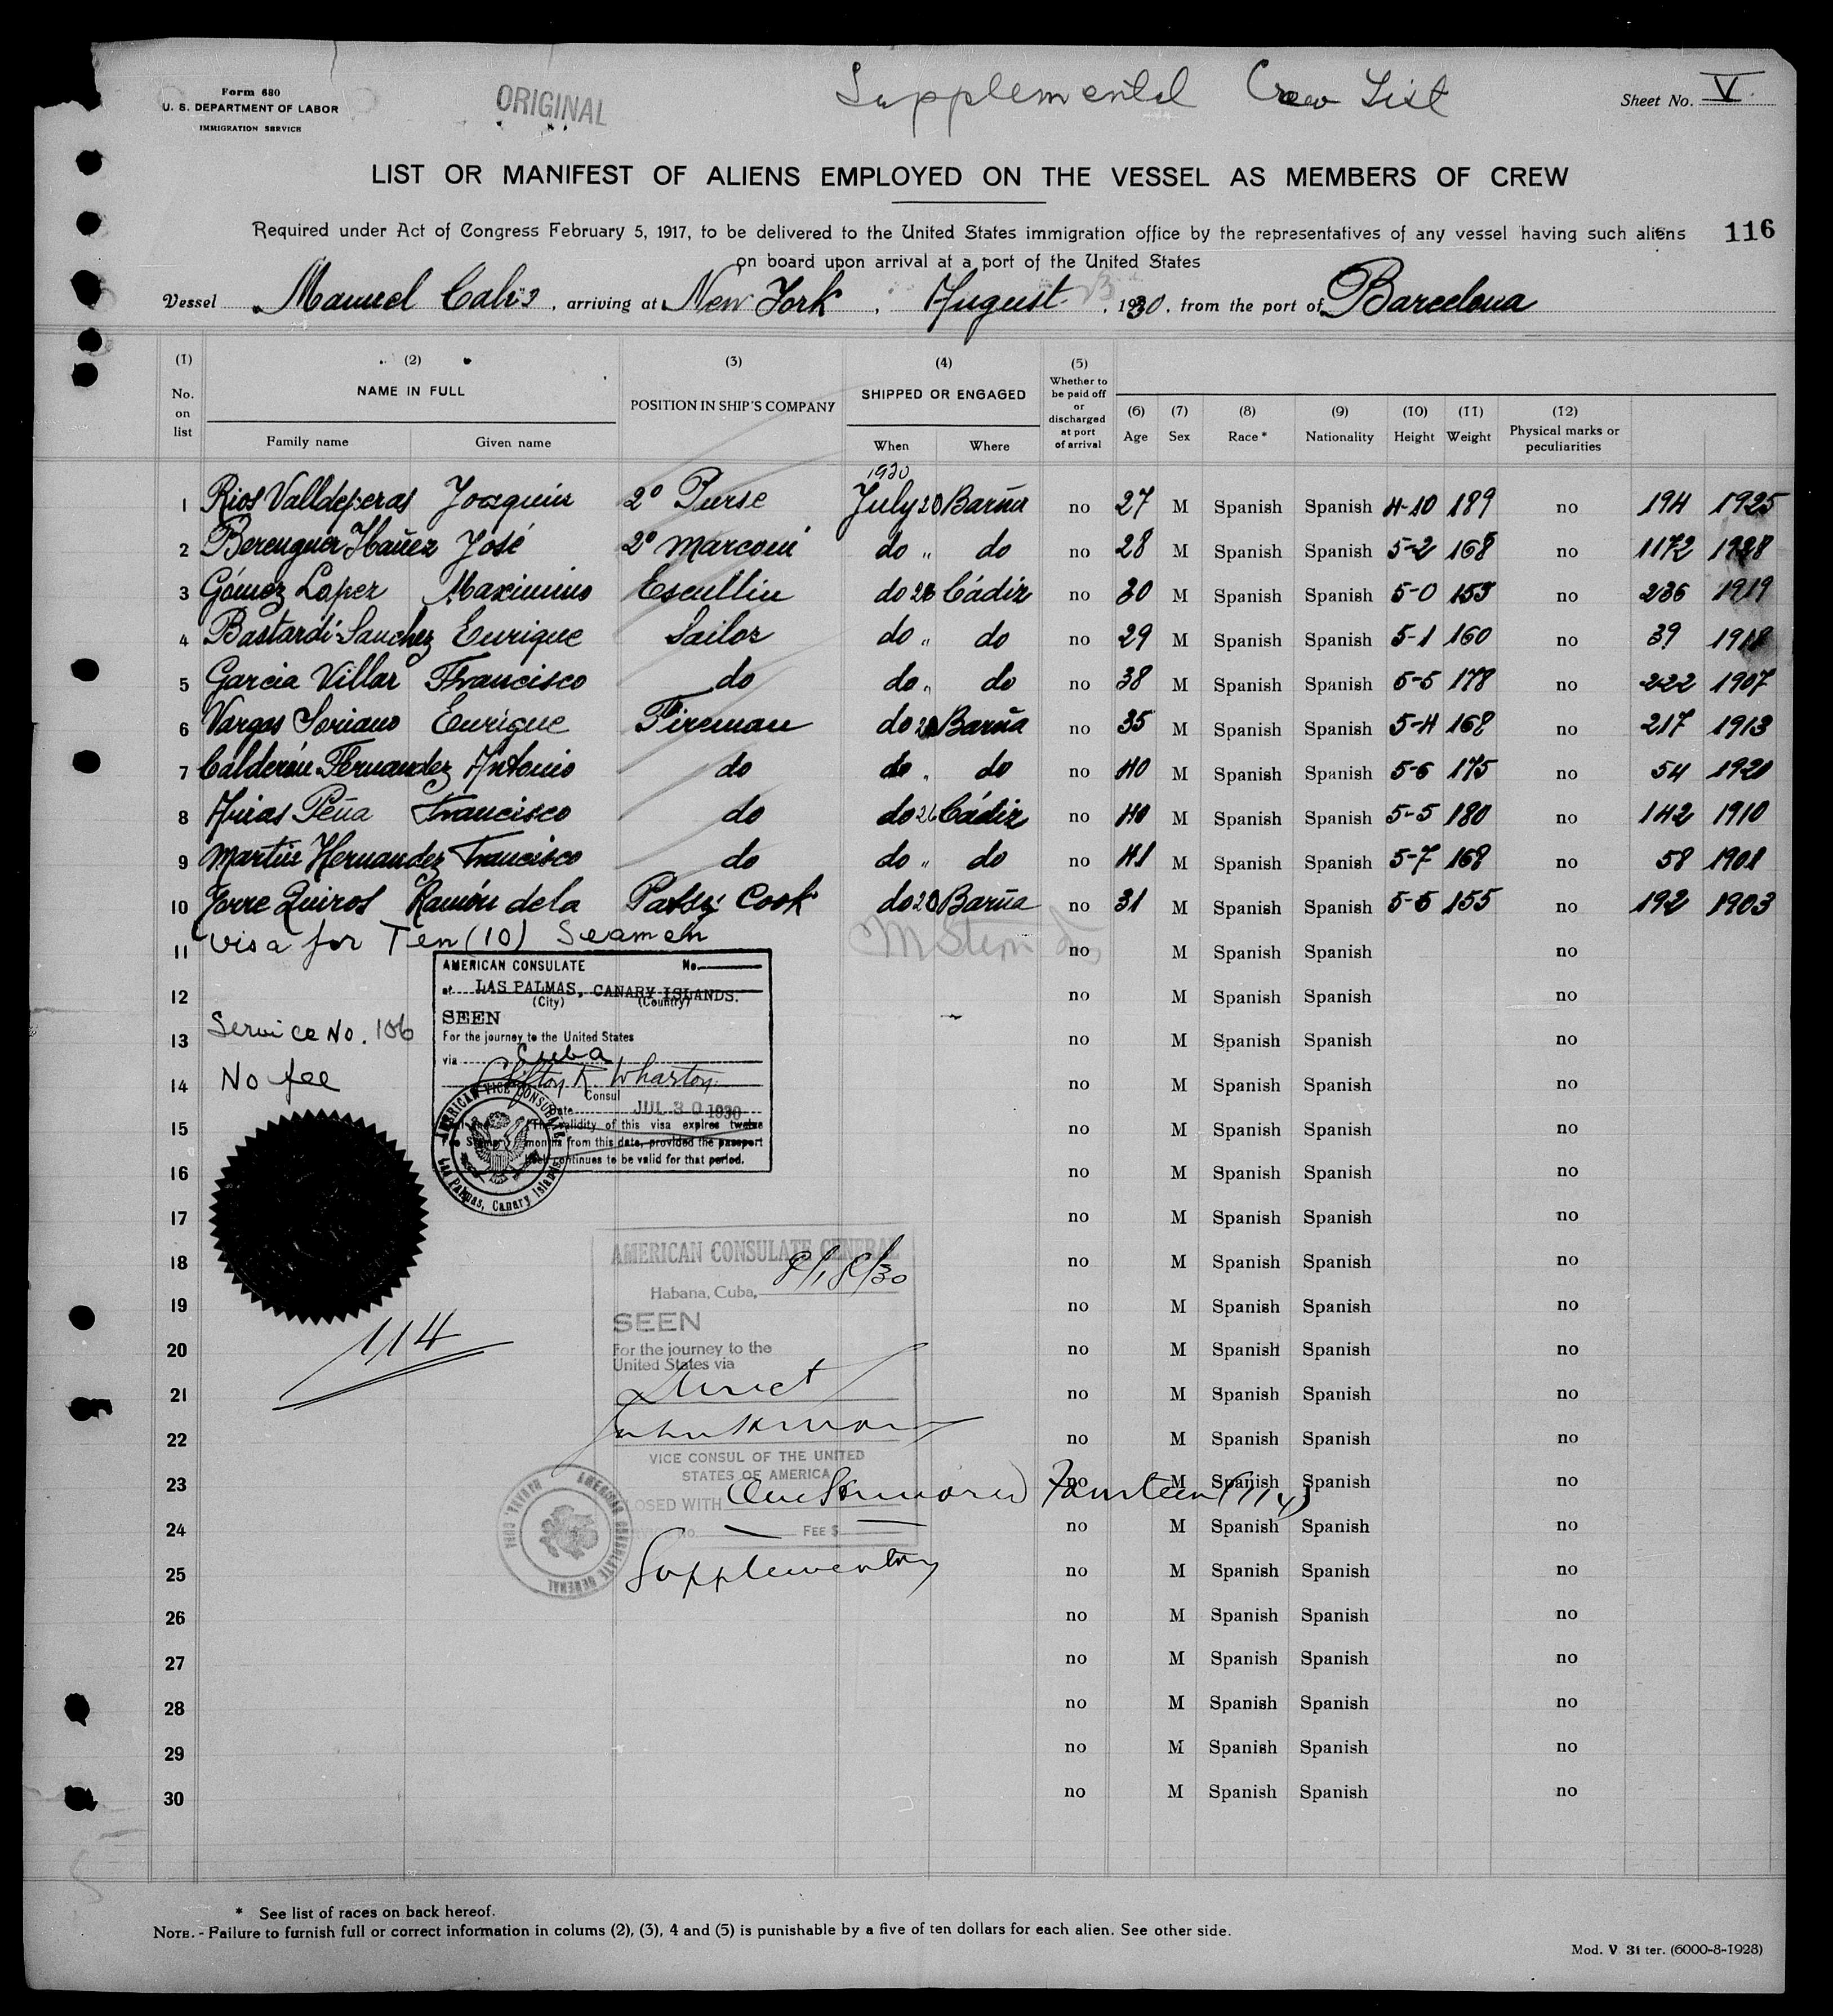 Form 680
U. S. DEPARTMENT OF LABOR
IMMIGRATION SERVICE
ORIGINAL
Supplemental Crew List
Sheet No. V
LIST OR MANIFEST OF ALIENS EMPLOYED ON THE VESSEL AS MEMBERS OF CREW
Required under Act of Congress February 5, 1917, to be delivered to the United States immigration office by the representatives of any vessel having such aliens
116
on board upon arrival at a port of the United States
Vessel Manuel Calvo, arriving at New York, August, 1930, from the port of Barcelona
(1) (2) (3) (4) (5)
No. on list NAME IN FULL POSITION IN SHIP'S COMPANY SHIPPED OR ENGAGED Whether to be paid off or discharged at port of arrival (6) (7) (8) (9) (10) (11) (12)
Family name Given name When Where Age Sex Race* Nationality Height Weight Physical marks or peculiarities
1930
1 Rios Valldeperas Joaquin 2º Purse July 20 Barña no 27 M Spanish Spanish 4-10 189 no 194 1925
2 Berenguer Ibañez José 2º Marconi do " do no 28 M Spanish Spanish 5-2 168 no 1172 1928
3 Gómez Lopez Maximino Escullin do 26 Cádiz no 30 M Spanish Spanish 5-0 153 no 236 1919
4 Bastardi Sanchez Enrique Sailor do " do no 29 M Spanish Spanish 5-1 160 no 39 1918
5 Garcia Villar Francisco do do " do no 38 M Spanish Spanish 5-5 178 no 222 1907
6 Vargas Soriano Enrique Fireman do 20 Barña no 35 M Spanish Spanish 5-4 168 no 217 1913
7 Calderón Fernandez Antonio do do " do no 40 M Spanish Spanish 5-6 175 no 54 1920
8 Arias Peña Francisco do do 26 Cádiz no 40 M Spanish Spanish 5-5 180 no 142 1910
9 Martin Hernandez Francisco do do " do no 41 M Spanish Spanish 5-7 168 no 58 1901
10 Torre Quiros Ramón de la Patsy Cook do 20 Barña no 31 M Spanish Spanish 5-5 155 no 192 1903
11 Visa for Ten (10) Seamen no M Spanish Spanish no
AMERICAN CONSULATE No.
at LAS PALMAS, CANARY ISLANDS.
(City) (Country)
12 no M Spanish Spanish no
SEEN
13 Service No. 106 no M Spanish Spanish no
For the journey to the United States
via Cuba
Clifton R. Wharton
14 No fee no M Spanish Spanish no
Consul
Date JUL 30 1930
The validity of this visa expires twelve
15 no M Spanish Spanish no
months from this date, provided the passport
continues to be valid for that period.
AMERICAN VICE CONSULATE
Las Palmas, Canary Islands
16 no M Spanish Spanish no
17 no M Spanish Spanish no
AMERICAN CONSULATE GENERAL
18 no M Spanish Spanish no
Habana, Cuba, 8/18/30
19 no M Spanish Spanish no
SEEN
114
20 no M Spanish Spanish no
For the journey to the
United States via
Direct
21 no M Spanish Spanish no
22 no M Spanish Spanish no
VICE CONSUL OF THE UNITED
STATES OF AMERICA
23 no M Spanish Spanish no
CLOSED WITH One Hundred Fourteen (114)
24 no M Spanish Spanish no
No. FEE $
AMERICAN CONSULATE GENERAL
HABANA, CUBA
25 Supplementary no M Spanish Spanish no
26 no M Spanish Spanish no
27 no M Spanish Spanish no
28 no M Spanish Spanish no
29 no M Spanish Spanish no
30 no M Spanish Spanish no
* See list of races on back hereof.
NOTE. - Failure to furnish full or correct information in colums (2), (3), 4 and (5) is punishable by a five of ten dollars for each alien. See other side.
Mod. V 31 ter. (6000-8-1928)